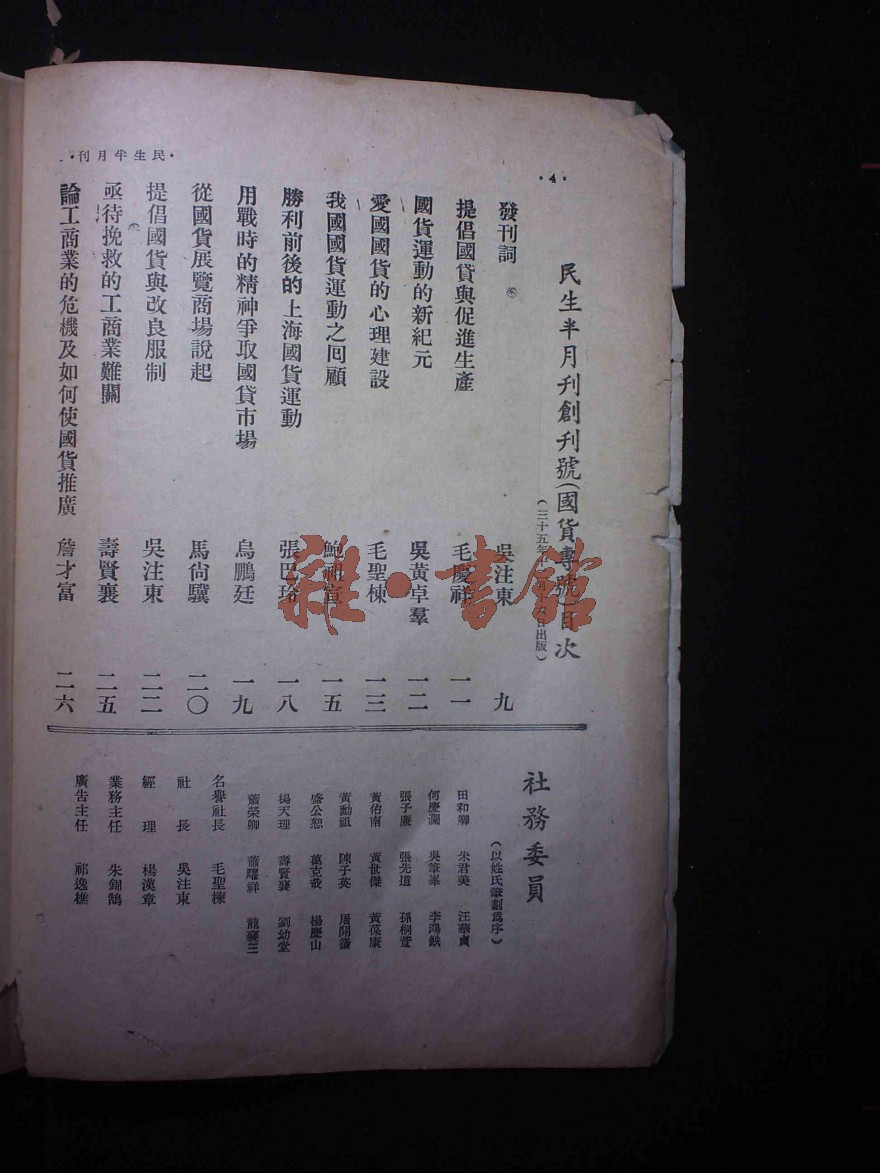 •4•
民生半月刊•
民生半月刊創刊號(國貨專號)目次
(三十五年十月十日出版)
發刊詞 吳注東 九
提倡國貨與促進生產 毛慶祥 一一
國貨運動的新紀元 吳黃卓羣 一二
愛國國貨的心理建設 毛聖棟 一三
我國國貨運動之回顧 鮑祖宣 一五
勝利前後的上海國貨運動 張巴玲 一八
用戰時的精神爭取國貨市場 烏鵬廷 一九
從國貨展覽商場說起 馬尙驥 二〇
提倡國貨與改良服制 吳注東 二二
亟待挽救的工商業難關 壽賢襄 二五
論工商業的危機及如何使國貨推廣 詹才富 二六
社務委員
(以姓氏筆劃爲序)
田和卿 朱君美 汪華貞
何慶瀾 吳筆峯 李鴻
張子廉 張先道 孫桐萱
黃佑南 黃世傑 黃葆康
黃勳祖 陳子英 屠開
盛公恕 萬克哉 楊慶山
楊天理 壽賢襄 劉幼堂
蕭榮卿 蕭曜祥 龍襄三
名譽社長 毛聖棟
社長 吳注東
經理 楊漢章
業務主任 朱錦鵠
廣告主任 祁逸樵
雜·書館